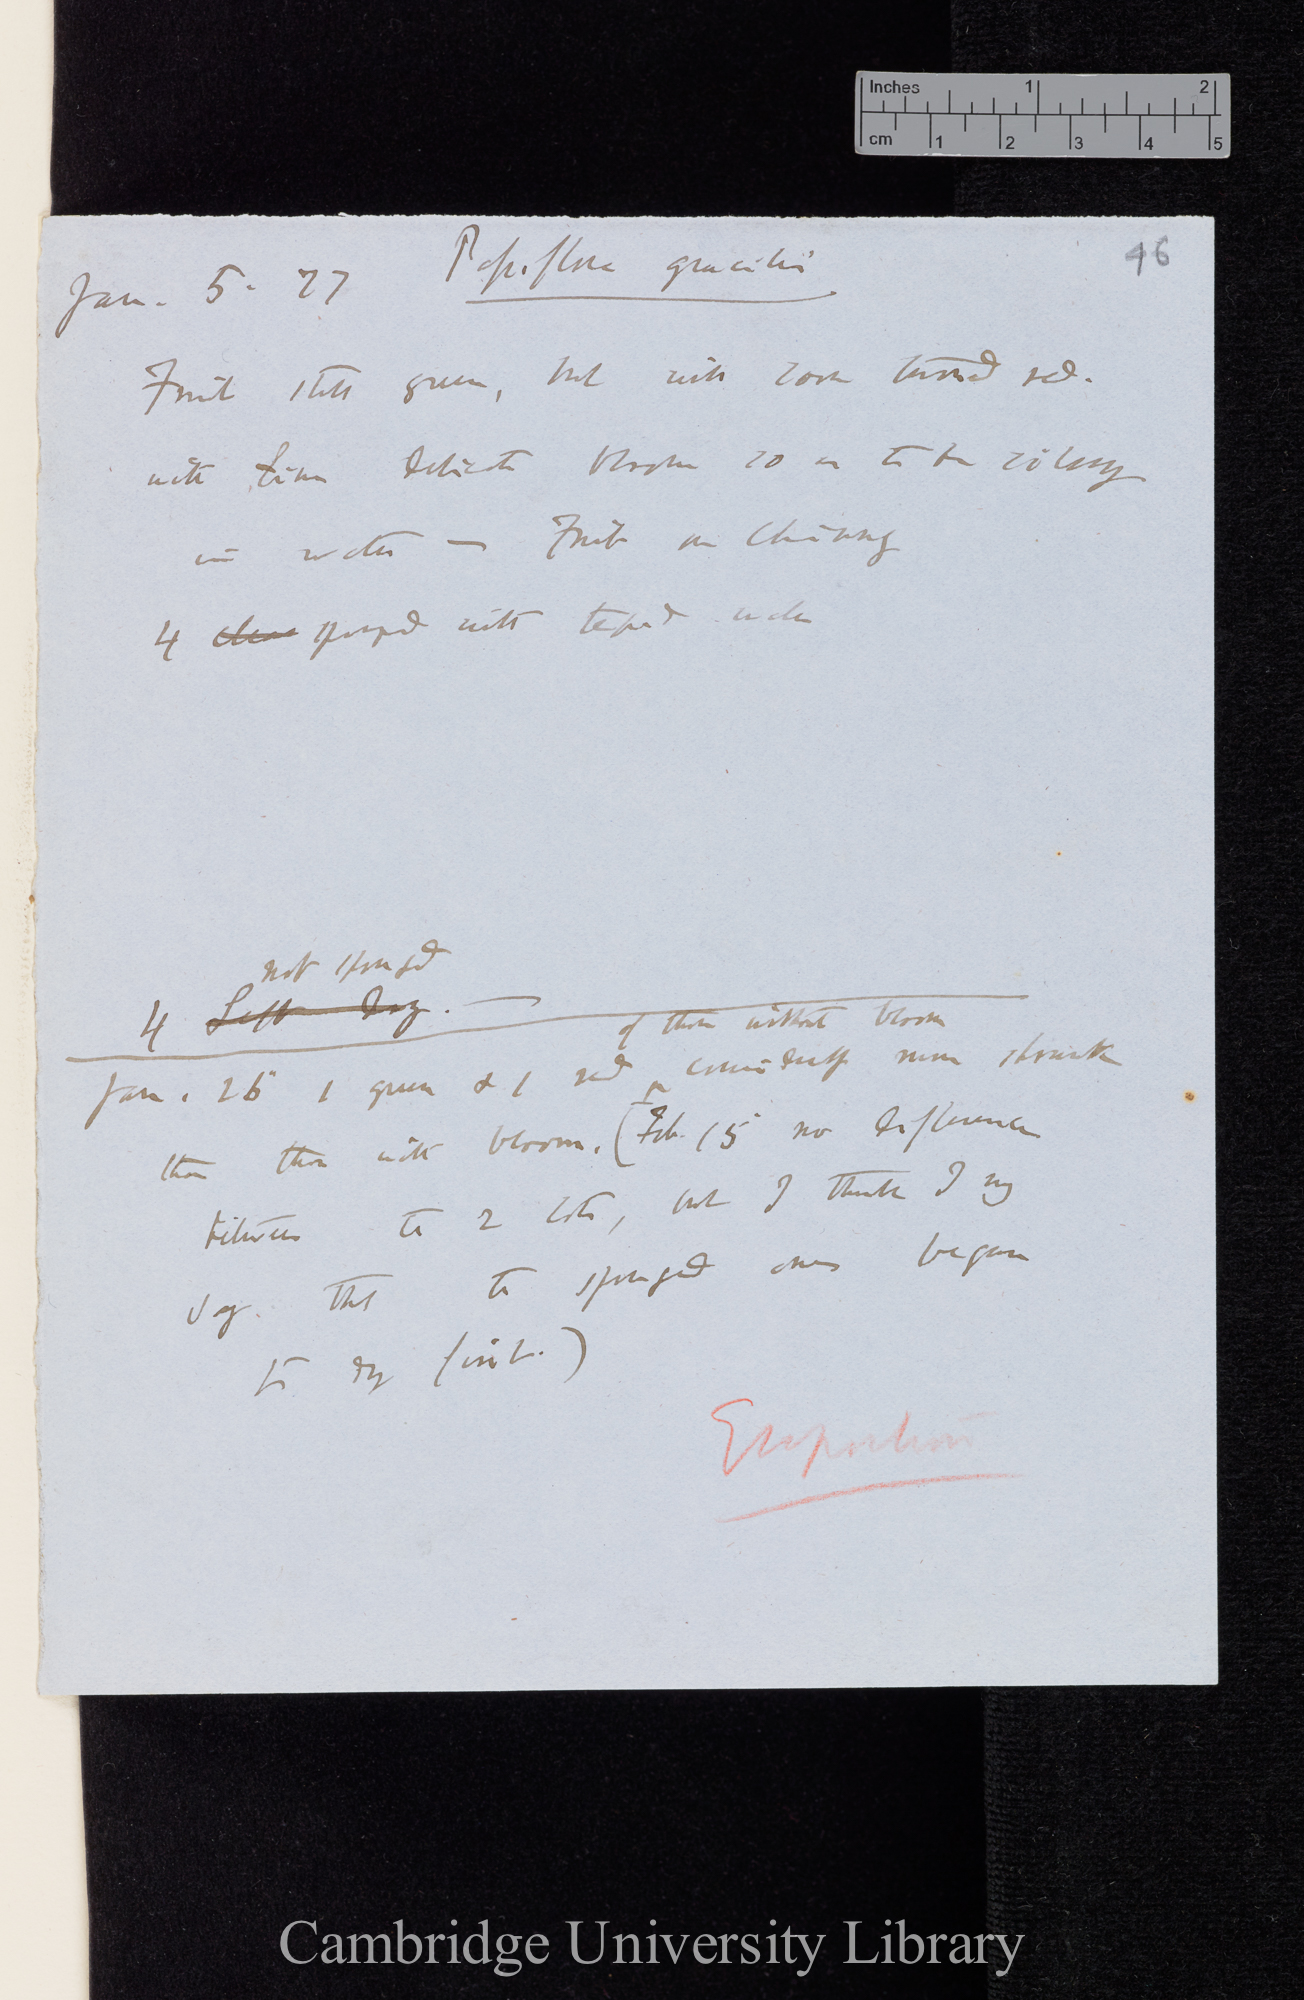 Inches 1 2
cm 1 2 3 4 5
46
Jan. 5. 77 Passiflora gracilis
Fruit still green, but will soon turned red.
with fine delicate bloom so as to be silvery
in water — Fruit on Chimney
4 sponged with tepid water
not sponged
4 Left dry. —
of those without bloom
Jan. 26 1 green & 1 red considerably more shrunk
than those with bloom. (Feb. 15 no difference
between the 2 lots, but I think I may
say that the sponged ones began
to dry first.)
Evaporation
Cambridge University Library